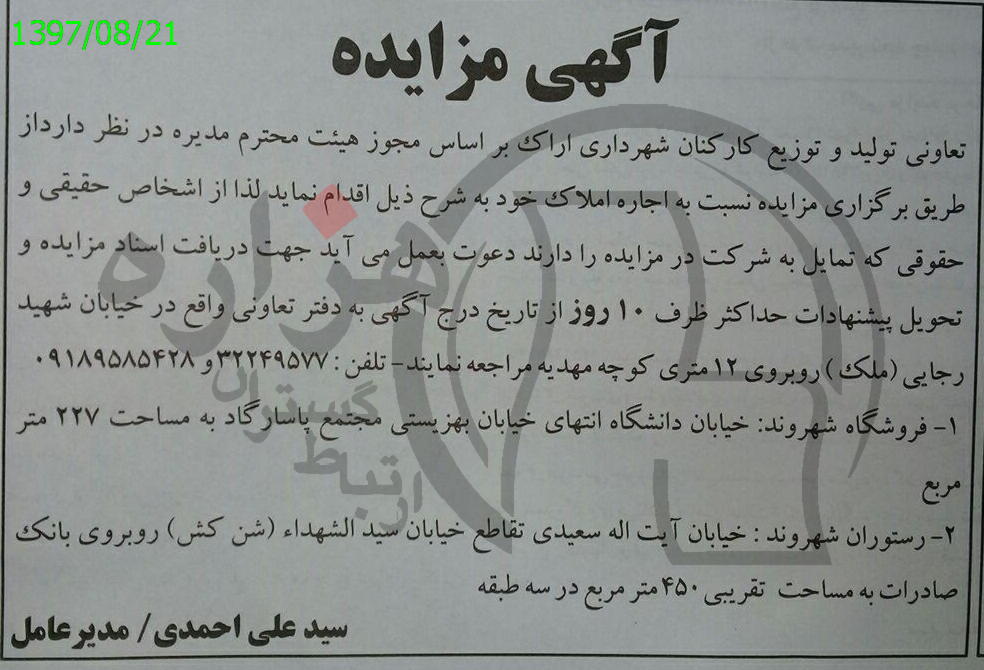 1397/08/21
آگهی مزایده
تعاونی تولید و توزیع کارکنان شهرداری اراک بر اساس مجوز هیئت محترم مدیره در نظر دارداز
طریق برگزاری مزایده نسبت به اجاره املاک خود به شرح ذیل اقدام نماید لذا از اشخاص حقیقی و
حقوقی که تمایل به شرکت در مزایده را دارند دعوت بعمل می آید جهت دریافت اسناد مزایده و
تحویل پیشنهادات حداکثر ظرف ۱۰ روز از تاریخ درج آگهی به دفتر تعاونی واقع در خیابان شهید
رجایی (ملک) روبروی ۱۲ متری کوچه مهدیه مراجعه نمایند- تلفن : ۳۲۲۴۹۵۷۷ و ۰۹۱۸۹۵۸۵۴۲۸
۱- فروشگاه شهروند: خیابان دانشگاه انتهای خیابان بهزیستی مجتمع پاسارگاد به مساحت ۲۲۷ متر
مربع
۲- رستوران شهروند : خیابان آیت اله سعیدی تقاطع خیابان سید الشهداء (شن کش) روبروی بانک
صادرات به مساحت تقریبی ۴۵۰ متر مربع در سه طبقه
سید علی احمدی/ مدیرعامل
هزاره
ارتباط گستران